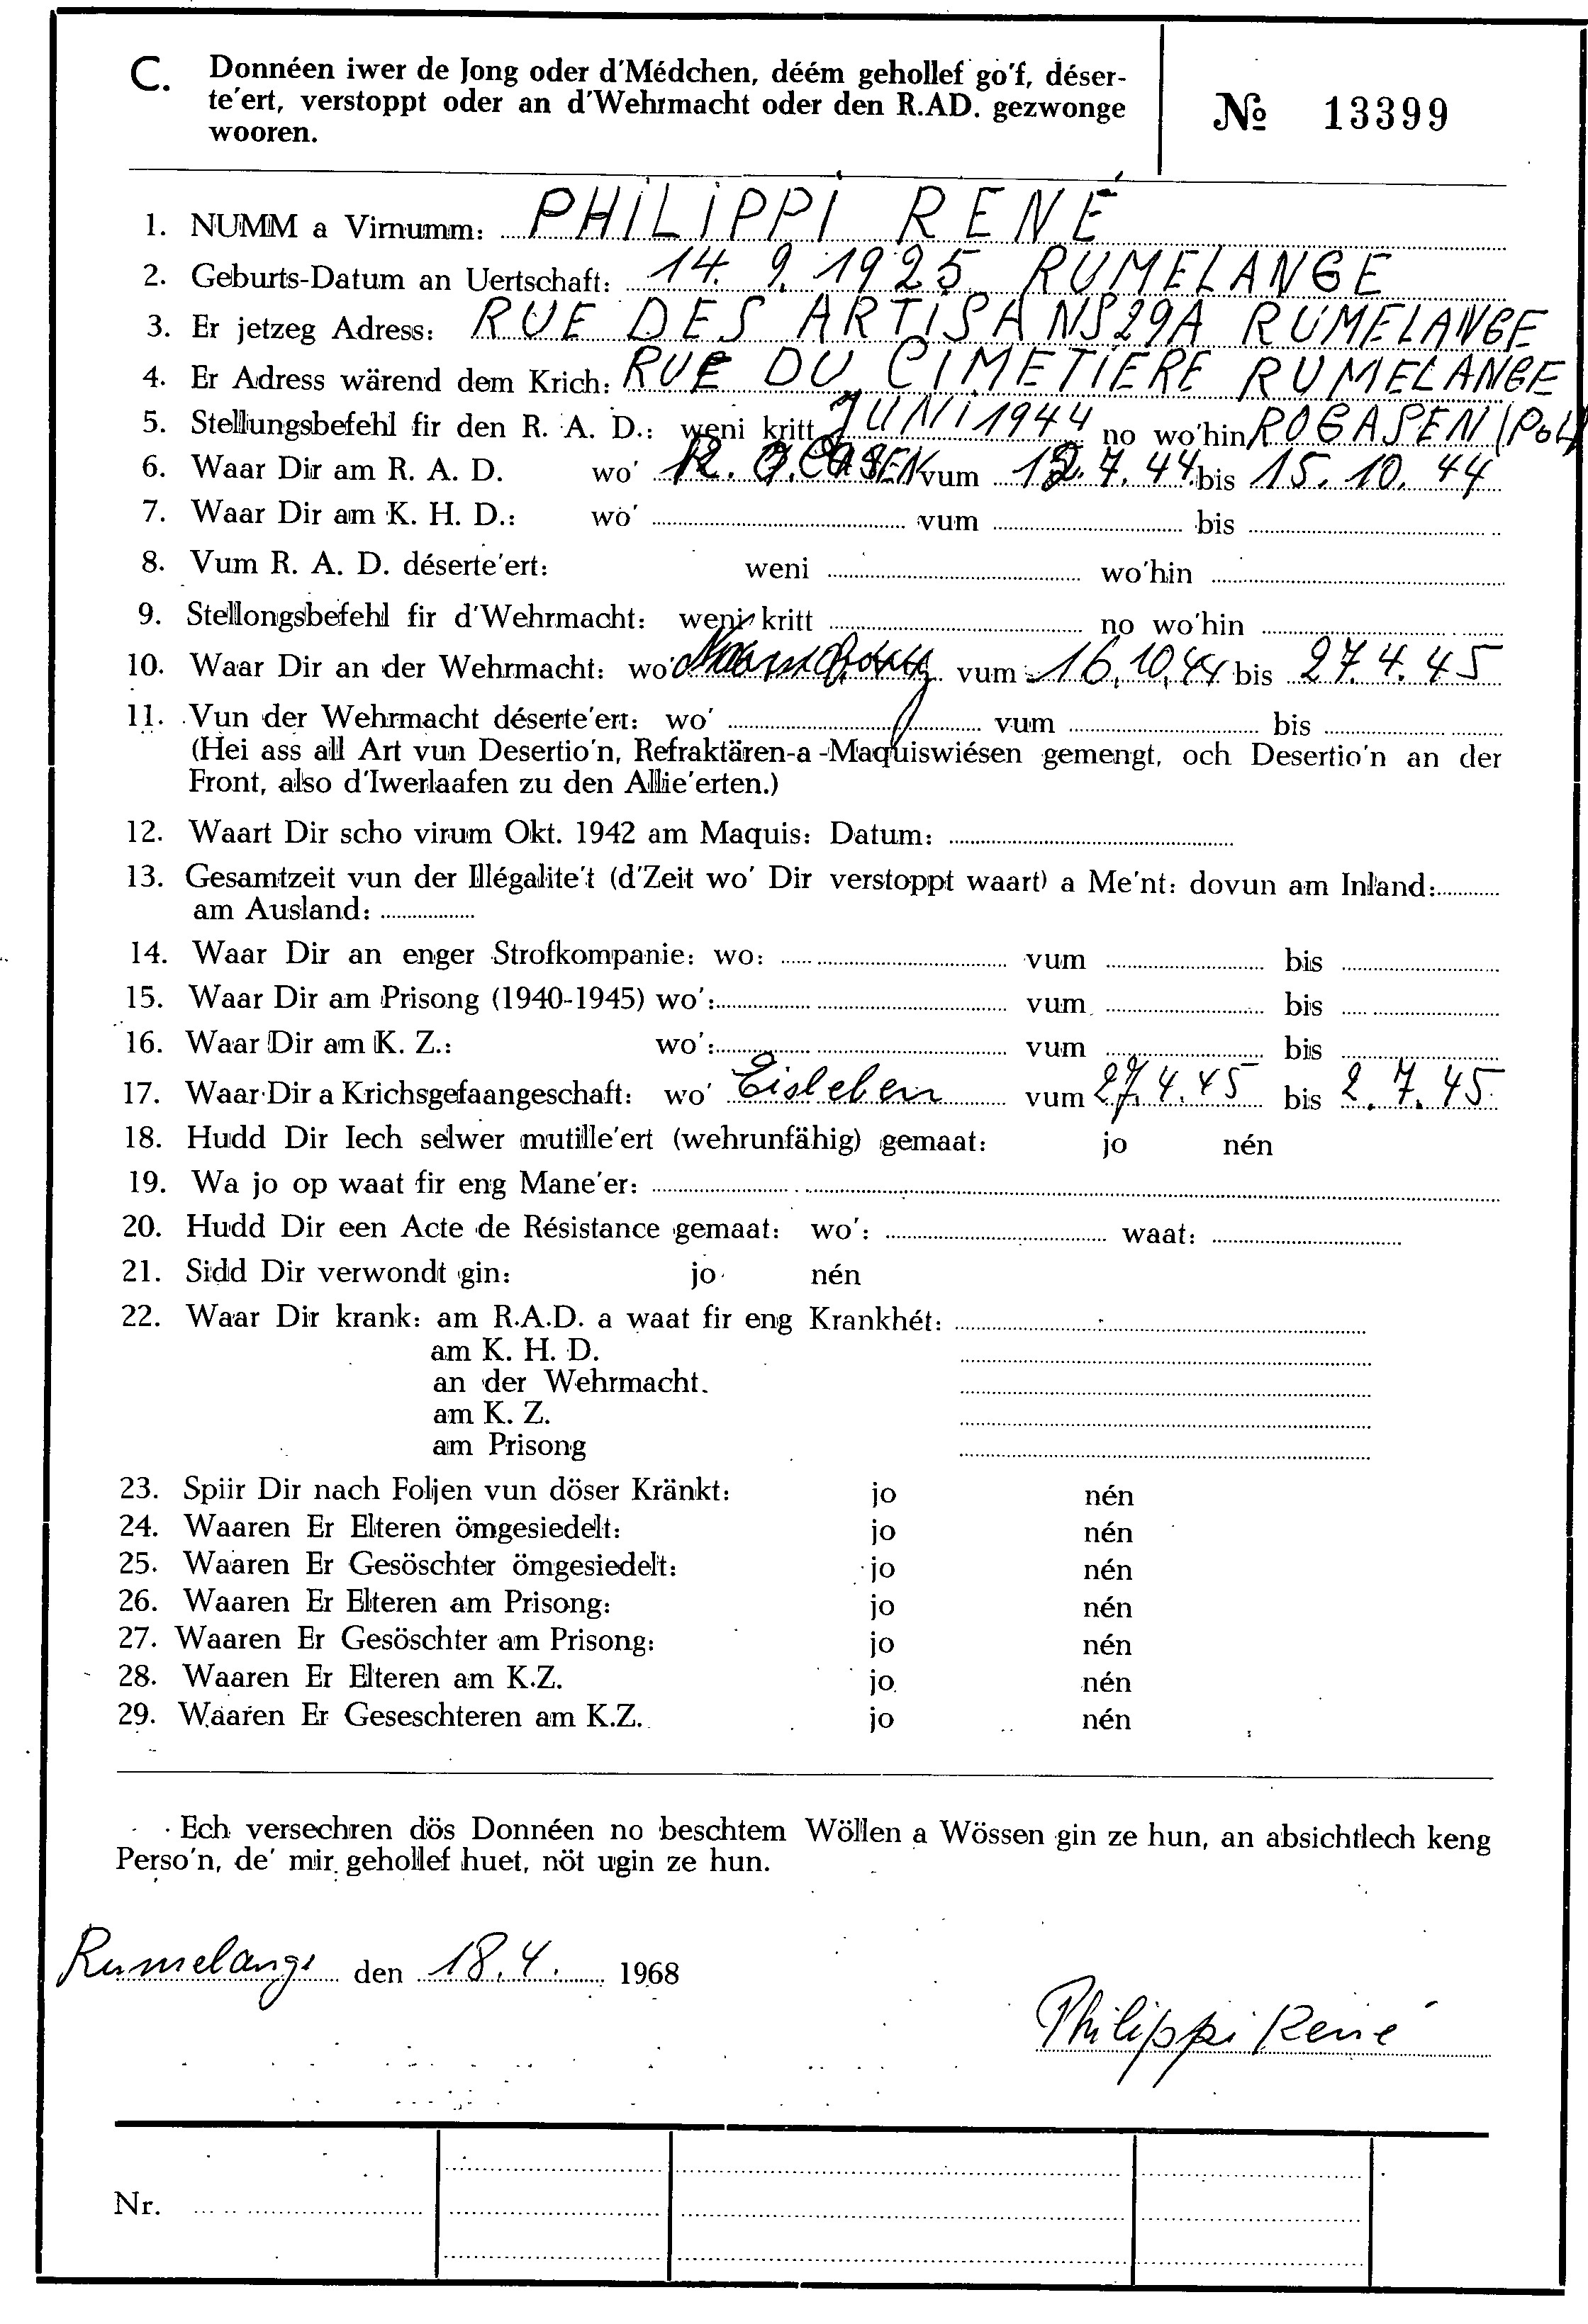 C. Donnéen iwer de Jong oder d'Médchen, déém gehollef go'f, déser-
te'ert, verstoppt oder an d'Wehrmacht oder den R.AD. gezwonge
wooren.
№ 13399
1. NUMM a Virnumm: PHILIPPI RENÉ
2. Geburts-Datum an Uertschaft: 14. 9. 1925 RUMELANGE
3. Er jetzeg Adress: RUE DES ARTISANS 29A RUMELANGE
4. Er Adress wärend dem Krich: RUE DU CIMETIERE RUMELANGE
5. Stellungsbefehl fir den R. A. D.: weni kritt JUNI 1944 no wo'hin ROGASEN (Pol)
6. Waar Dir am R. A. D. wo' vum 7. 44. bis 15. 10. 44
7. Waar Dir am K. H. D.: wo' vum bis
8. Vum R. A. D. déserte'ert: weni wo'hin
9. Stellongsbefehl fir d'Wehrmacht: weni kritt no wo'hin
10. Waar Dir an der Wehrmacht: wo' vum 16. 10. 44 bis 27. 4. 45
11. Vun der Wehrmacht déserte'ert: wo' vum bis
(Hei ass all Art vun Desertio'n, Refraktären-a-Maquiswiésen gemengt, och Desertio'n an der
Front, also d'Iwerlaafen zu den Allie'erten.)
12. Waart Dir scho virum Okt. 1942 am Maquis: Datum:
13. Gesamtzeit vun der Illégalite't (d'Zeit wo' Dir verstoppt waart) a Me'nt: dovun am Inland:
am Ausland:
14. Waar Dir an enger Strofkompanie: wo: vum bis
15. Waar Dir am Prisong (1940-1945) wo': vum bis
16. Waar Dir am K. Z.: wo': vum bis
17. Waar Dir a Krichsgefaangeschaft: wo' Eisleben vum 27. 4. 45 bis 2. 7. 45
18. Hudd Dir Iech selwer mutille'ert (wehrunfähig) gemaat: jo nén
19. Wa jo op waat fir eng Mane'er:
20. Hudd Dir een Acte de Résistance gemaat: wo': waat:
21. Sidd Dir verwondt gin: jo nén
22. Waar Dir krank: am R.A.D. a waat fir eng Krankhét:
am K. H. D.
an der Wehrmacht.
am K. Z.
am Prisong
23. Spiir Dir nach Foljen vun döser Kränkt: jo nén
24. Waaren Er Elteren ömgesiedelt: jo nén
25. Waaren Er Gesöschter ömgesiedelt: jo nén
26. Waaren Er Elteren am Prisong: jo nén
27. Waaren Er Gesöschter am Prisong: jo nén
28. Waaren Er Elteren am K.Z. jo nén
29. Waaren Er Geseschteren am K.Z. jo nén
Ech versechren dös Donnéen no beschtem Wöllen a Wössen gin ze hun, an absichtlech keng
Perso'n, de' mir gehollef huet, nöt ugin ze hun.
Rumelange den 18. 4. 1968
Philippi René
Nr.